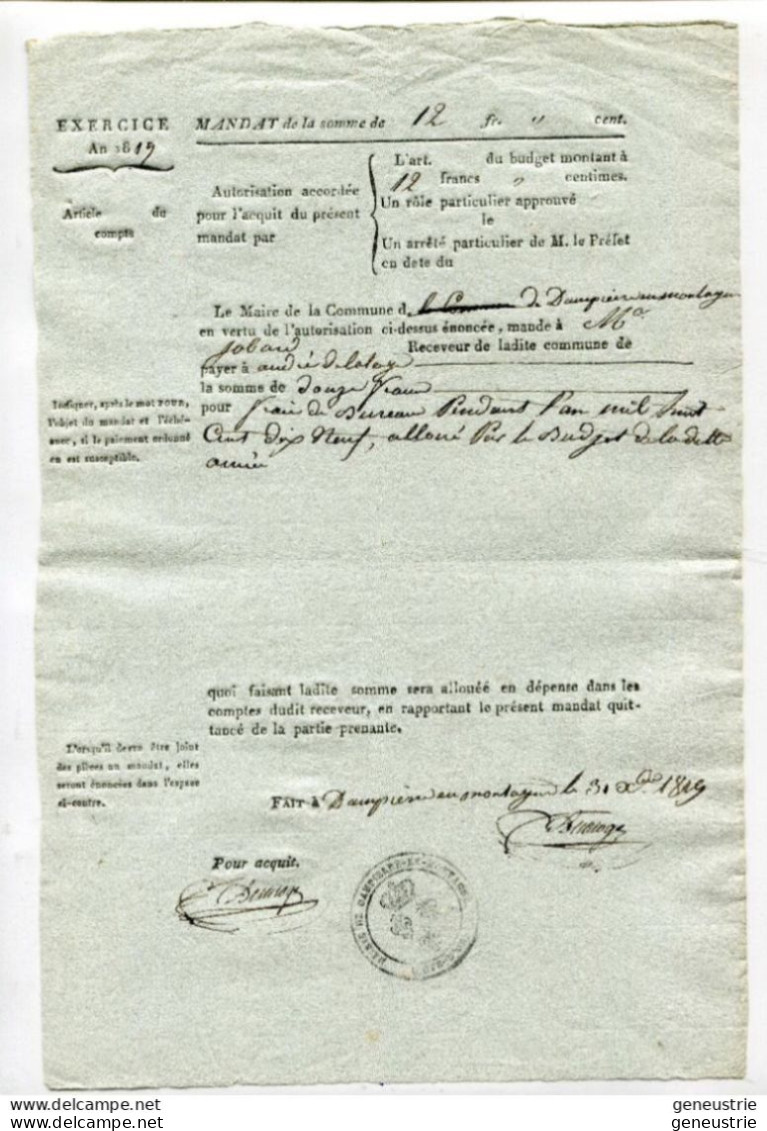 EXERCICE
An 1819
MANDAT de la somme de 12 fr. " cent.
Autorisation accordée
pour l'acquit du présent
mandat par
L'art. du budget montant à
12 francs " centimes.
Un rôle particulier approuvé
le
Un arrêté particulier de M. le Préfet
en date du
Article du
compte
Le Maire de la Commune d de Dampierre en montagne
en vertu de l'autorisation ci-dessus énoncée, mande à Mr
Jobard Receveur de ladite commune de
payer à andré
la somme de douze francs
pour frais de Bureau Pendant l'an mil huit
Cent dix Neuf, alloué Par le Budget de ladite
année
Indiquer, après le mot POUR,
l'objet du mandat et l'éché-
ance, si le paiement ordonné
en est susceptible.
quoi faisant ladite somme sera allouée en dépense dans les
comptes dudit receveur, en rapportant le présent mandat quit-
tancé de la partie prenante.
Lorsqu'il devra être joint
des pièces au mandat, elles
seront énoncées dans l'espace
ci-contre.
FAIT à Dampierre en montagne le 31 Xbre 1819
Pour acquit.
MAIRIE DE DAMPIERRE-EN-MONTAGNE
geneustrie
geneustrie
geneustrie
geneustrie